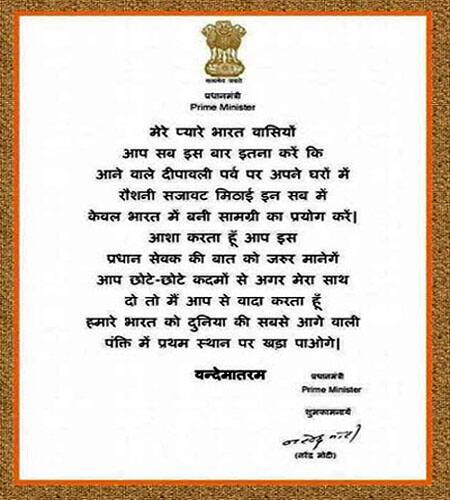 सत्यमेव जयते
प्रधानमंत्री
Prime Minister
मेरे प्यारे भारत वासियों
आप सब इस बार इतना करें कि
आने वाले दीपावली पर्व पर अपने घरों में
रौशनी सजावट मिठाई इन सब में
केवल भारत में बनी सामग्री का प्रयोग करें|
आशा करता हूँ आप इस
प्रधान सेवक की बात को जरूर मानेगें
आप छोटे-छोटे कदमों से अगर मेरा साथ
दो तो मैं आप से वादा करता हूँ
हमारे भारत को दुनिया की सबसे आगे वाली
पंक्ति में प्रथम स्थान पर खड़ा पाओगे|
वन्देमातरम
प्रधानमंत्री
Prime Minister
शुभकामनायें
नरेंद्र मोदी
(नरेंद्र मोदी)